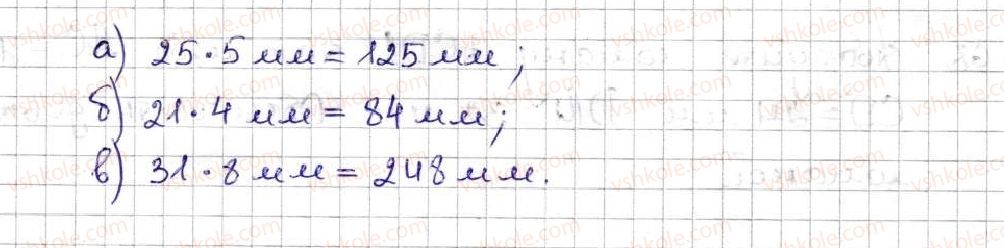 а) 25 · 5 мм = 125 мм;
б) 21 · 4 мм = 84 мм;
в) 31 · 8 мм = 248 мм.
vshkole.com